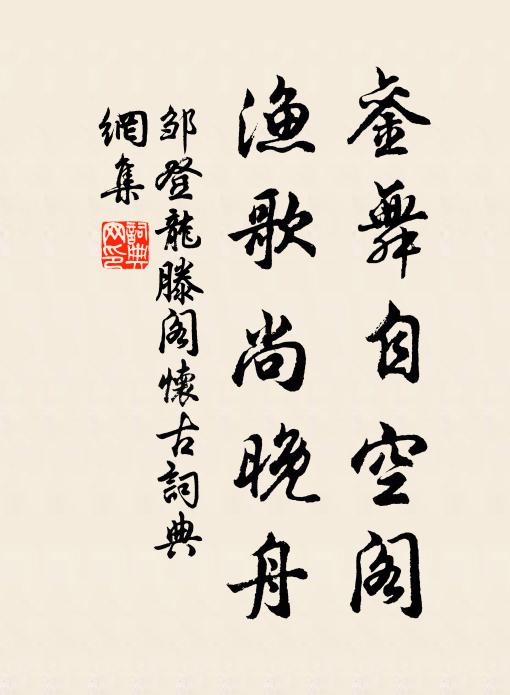 銮舞自空阁
渔歌尚晚舟
邹登龍滕阁懷古詞典
網集
詞典
网印